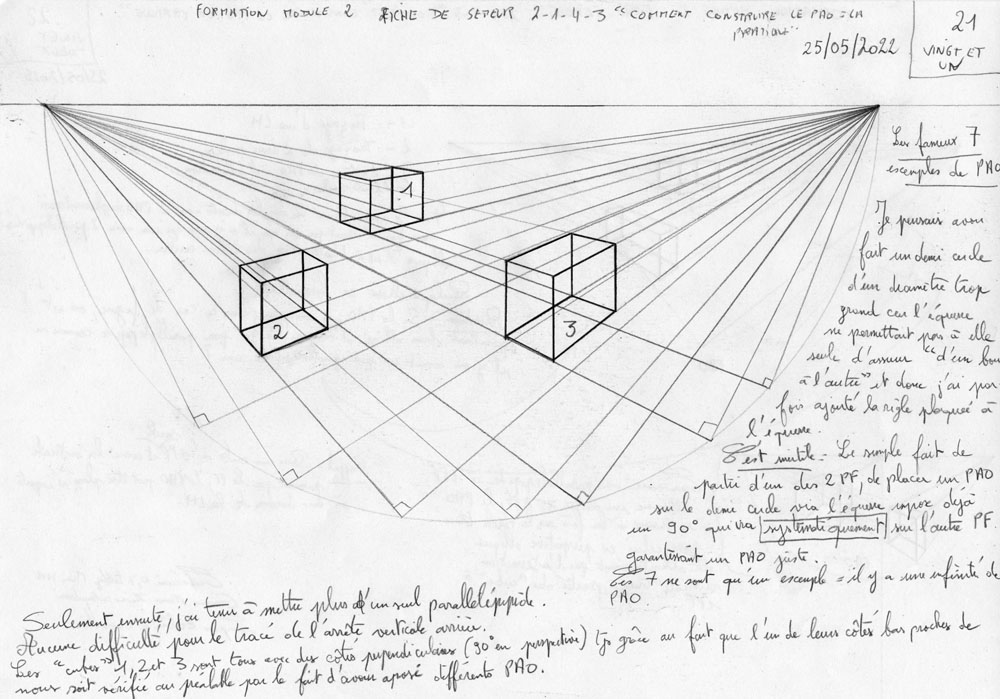 FORMATION MODULE 2 FICHE DE SECTEUR 2-1-4-3 "COMMENT CONSTRUIRE LE PAO = LA
PRATIQUE"
25/05/2022
21
VINGT ET
UN
Les fameux 7
exemples de PAO
Je pensais avoir
fait un demi cercle
d'un diamètre trop
grand car l'équerre
ne permettait pas à elle
seule d'assurer "d'un bout
à l'autre" et donc j'ai par
fois ajouté la règle plaquée à
l'équerre.
C'est inutile. Le simple fait de
partir d'un des 2 PF, de placer un PAO
sur le demi cercle via l'équerre impose déjà
un 90° qui va systématiquement sur l'autre PF.
garantissant un PAO juste.
Ces 7 ne sont qu'un exemple = il y a une infinité de
PAO
1
2
3
Seulement ensuite, j'ai tenu à mettre plus d'un seul parallélépipède.
Aucune difficulté pour le tracé de l'arrête verticale arrière.
Les "cubes" 1, 2 et 3 sont tous avec des côtés perpendiculaires (90° en perspective) tjs grâce au fait que l'un de leurs côtés bas proches de
nous soit vérifié au préalable par le fait d'avoir apposé différents PAO.